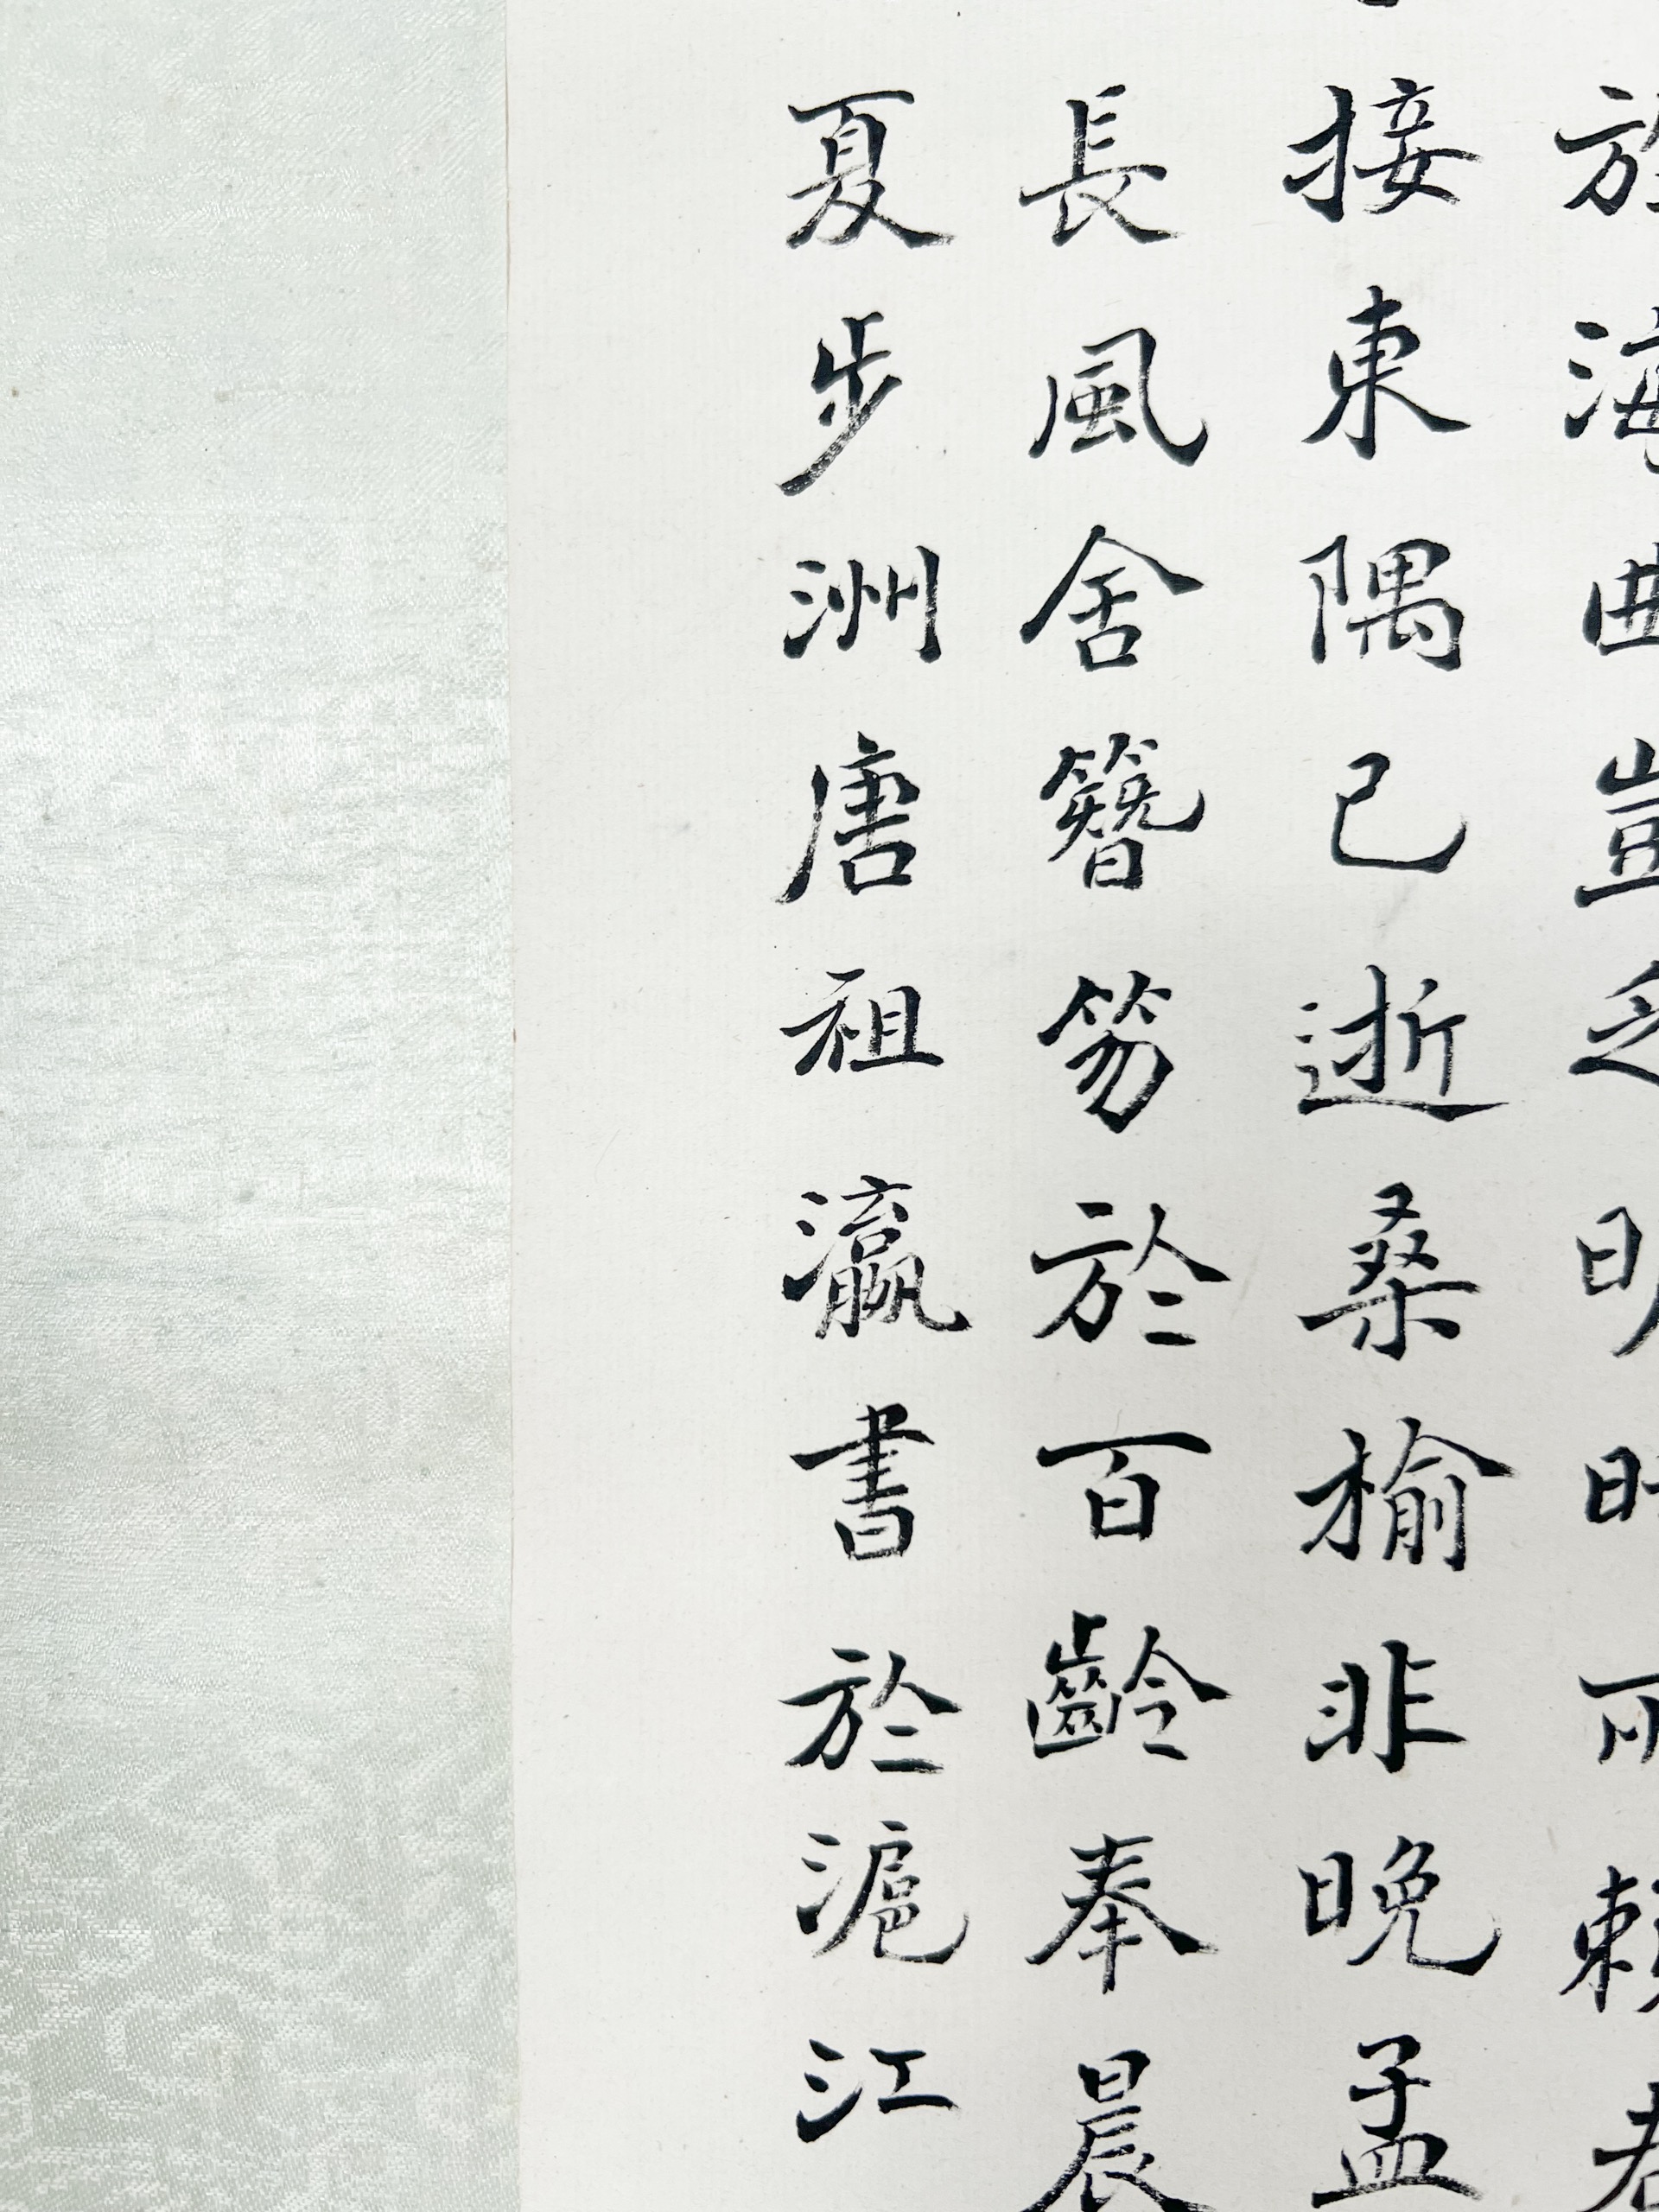 海曲豈乏明時所賴君
接東隅已逝桑榆非晚孟
長風舍簪笏於百齡奉晨
夏步洲唐祖瀛書於滬江